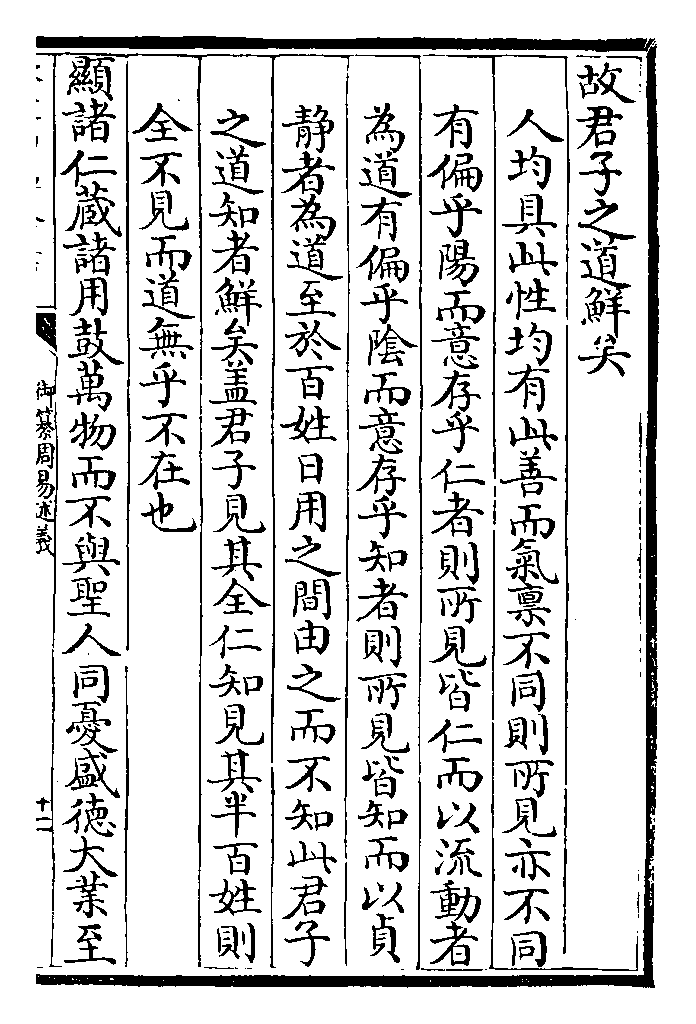 故君子之道鮮矣
人均具此性均有此善而氣禀不同則所見亦不同
有偏乎陽而意存乎仁者則所見皆仁而以流動者
為道有偏乎陰而意存乎知者則所見皆知而以貞
静者為道至於百姓日用之間由之而不知此君子
之道知者鮮矣盖君子見其全仁知見其半百姓則
全不見而道無乎不在也
顯諸仁蔵諸用鼓萬物而不與聖人同憂盛徳大業至
御纂周易述義
十二